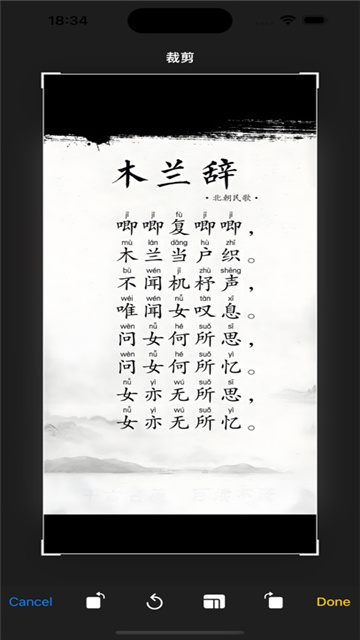 18:34
裁剪
木兰辞
·北朝民歌·
jī jī fù jī jī
唧唧复唧唧，
mù lán dāng hù zhī
木兰当户织。
bù wén jī zhù shēng
不闻机杼声，
wéi wén nǚ tàn xī
唯闻女叹息。
wèn nǚ hé suǒ sī
问女何所思，
wèn nǚ hé suǒ yì
问女何所忆。
nǚ yì wú suǒ sī
女亦无所思，
nǚ yì wú suǒ yì
女亦无所忆。
Cancel Done